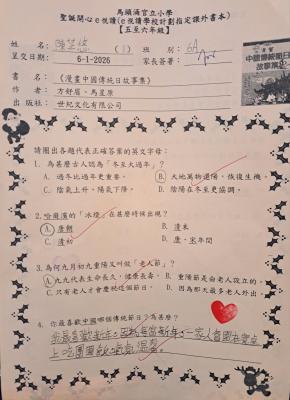 馬頭涌官立小學
聖誕開心e悅讀(e悅讀學校計劃指定課外書本)
【五至六年級】
姓名: 陳芷悠 (1) 班別: 6A
呈交日期: 6-1-2026 家長簽署:
書名: 《漫畫中國傳統日故事集》
作者: 方舒眉、馬星原
出版社: 世紀文化有限公司
請圈出各題代表正確答案的英文字母:
1. 為甚麼古人認為「冬至大過年」?
A. 過冬比過年更重要。 B. 大地萬物還陽、恢復生機。
C. 陰氣上升、陽氣下降。 D. 陰陽在冬至更協調。
2. 哈爾濱的「冰燈」在甚麼時候出現?
A. 唐朝 B. 遼末
C. 遼初 D. 唐、宋年間
3. 為何九月初九重陽又叫做「老人節」?
A. 九九代表生命長久、健康長壽。 B. 重陽節是由老人設立的。
C. 只有老人才會慶祝這個節日。 D. 因為那天最多老人外出。
4. 你最喜歡中國哪個傳統節日?為甚麼?
我最喜歡新年。因為每當新年,一家人會圍在桌
上吃團圓飯,歡欣溫馨。